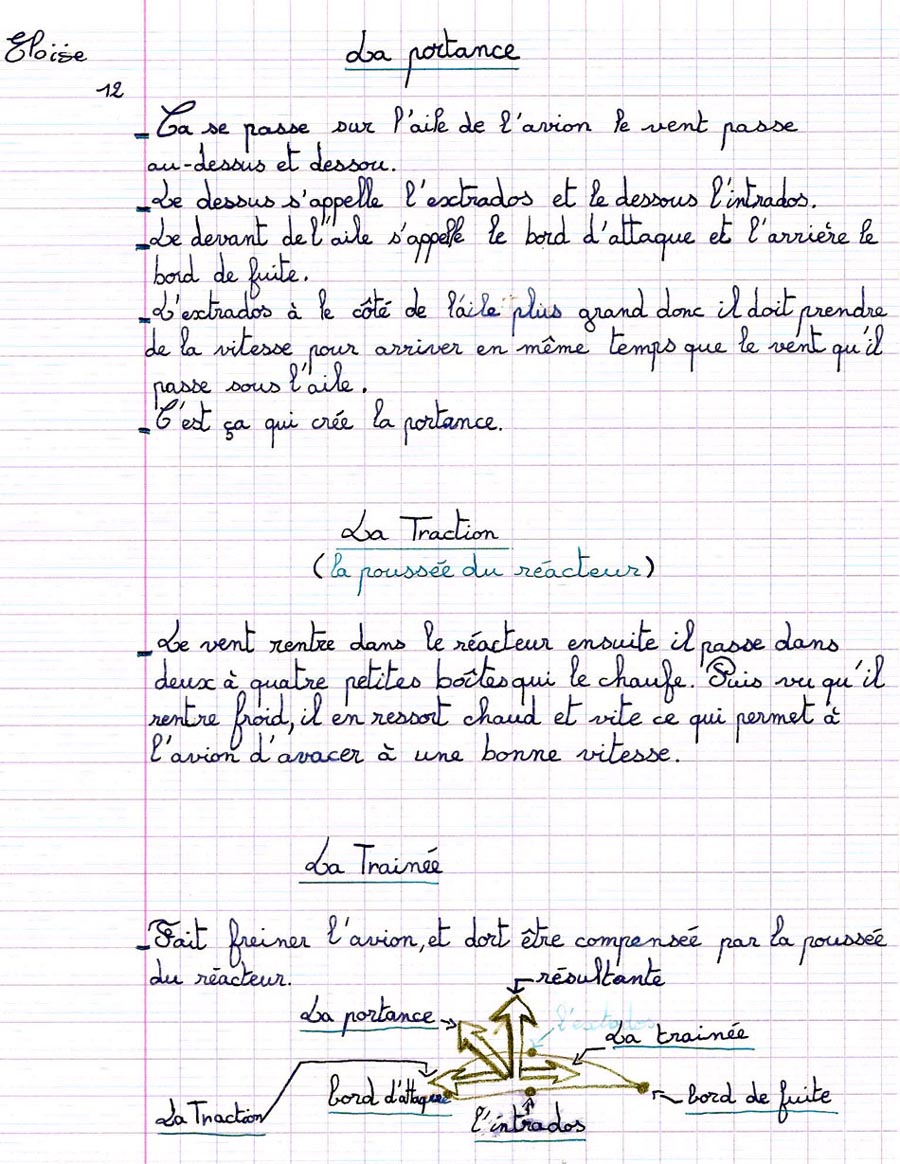 Eloise
La portance
12
- Ça se passe sur l'aile de l'avion le vent passe
au-dessus et dessou.
- Le dessus s'appelle l'exctrados et le dessous l'intrados.
- Le devant de l'aile s'appelle le bord d'attaque et l'arrière le
bord de fuite.
- L'extrados à le côté de l'áile plus grand donc il doit prendre
de la vitesse pour arriver en même temps que le vent qu'il
passe sous l'aile.
- C'est ça qui crée la portance.
La Traction
(la poussée du réacteur)
- Le vent rentre dans le réacteur ensuite il passe dans
deux à quatre petites boîtes qui le chaufe. Puis vu qu'il
rentre froid, il en ressort chaud et vite ce qui permet à
l'avion d'avacer à une bonne vitesse.
La Trainée
- Fait freiner l'avion, et doit être compenseé par la poussée
du réacteur.
résultante
La portance
l'extrados
La trainée
bord d'attaque
bord de fuite
La Traction
l'intrados